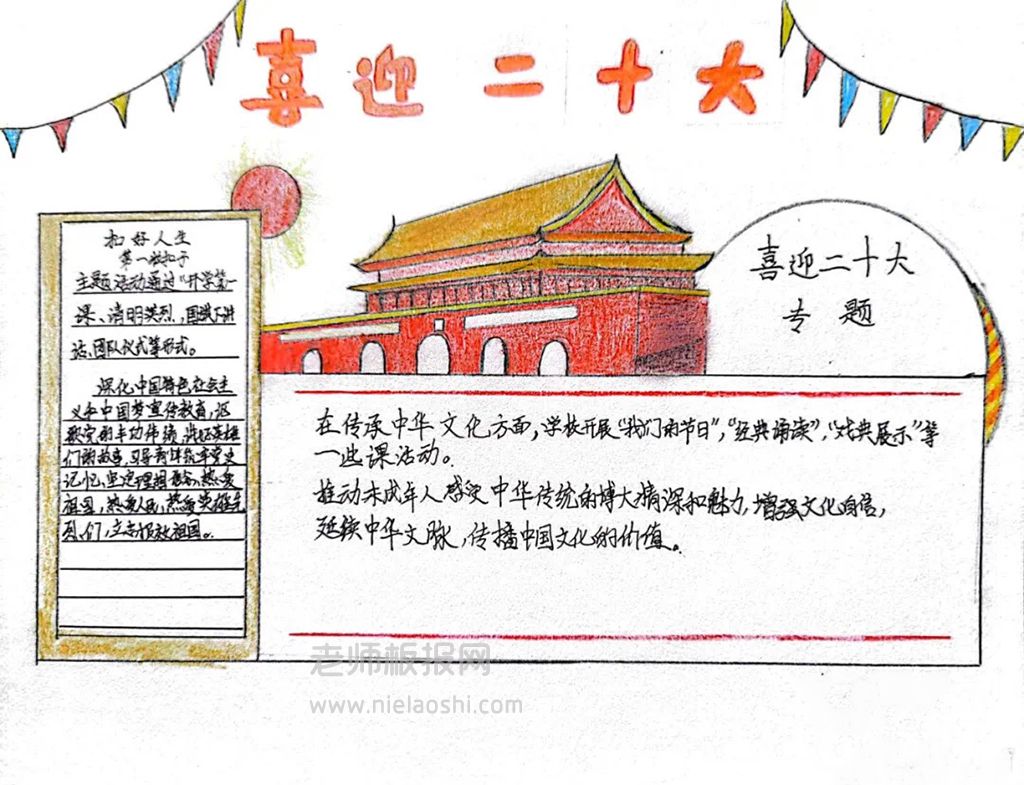 喜迎二十大
扣好人生
第一粒扣子
主题活动通过“开学第一
课、清明英烈，国旗下讲
话、团队仪式等形式。
深化中国特色社会主
义和中国梦宣传教育，讴
歌党的丰功伟绩，
们的故事，引导青年铭牢党史
记忆，坚定理想信念，热爱
祖国，热爱人民，热爱英雄先
烈们，立志报效祖国。
喜迎二十大
专 题
在传承中华文化方面，学校开展“我们的节日”，“经典诵读”，“戏典展示”等
一些课活动。
推动未成年人感受中华传统的博大精深和魅力，增强文化自信，
延续中华文脉，传播中国文化的价值。
老师板报网
www.nielaoshi.com